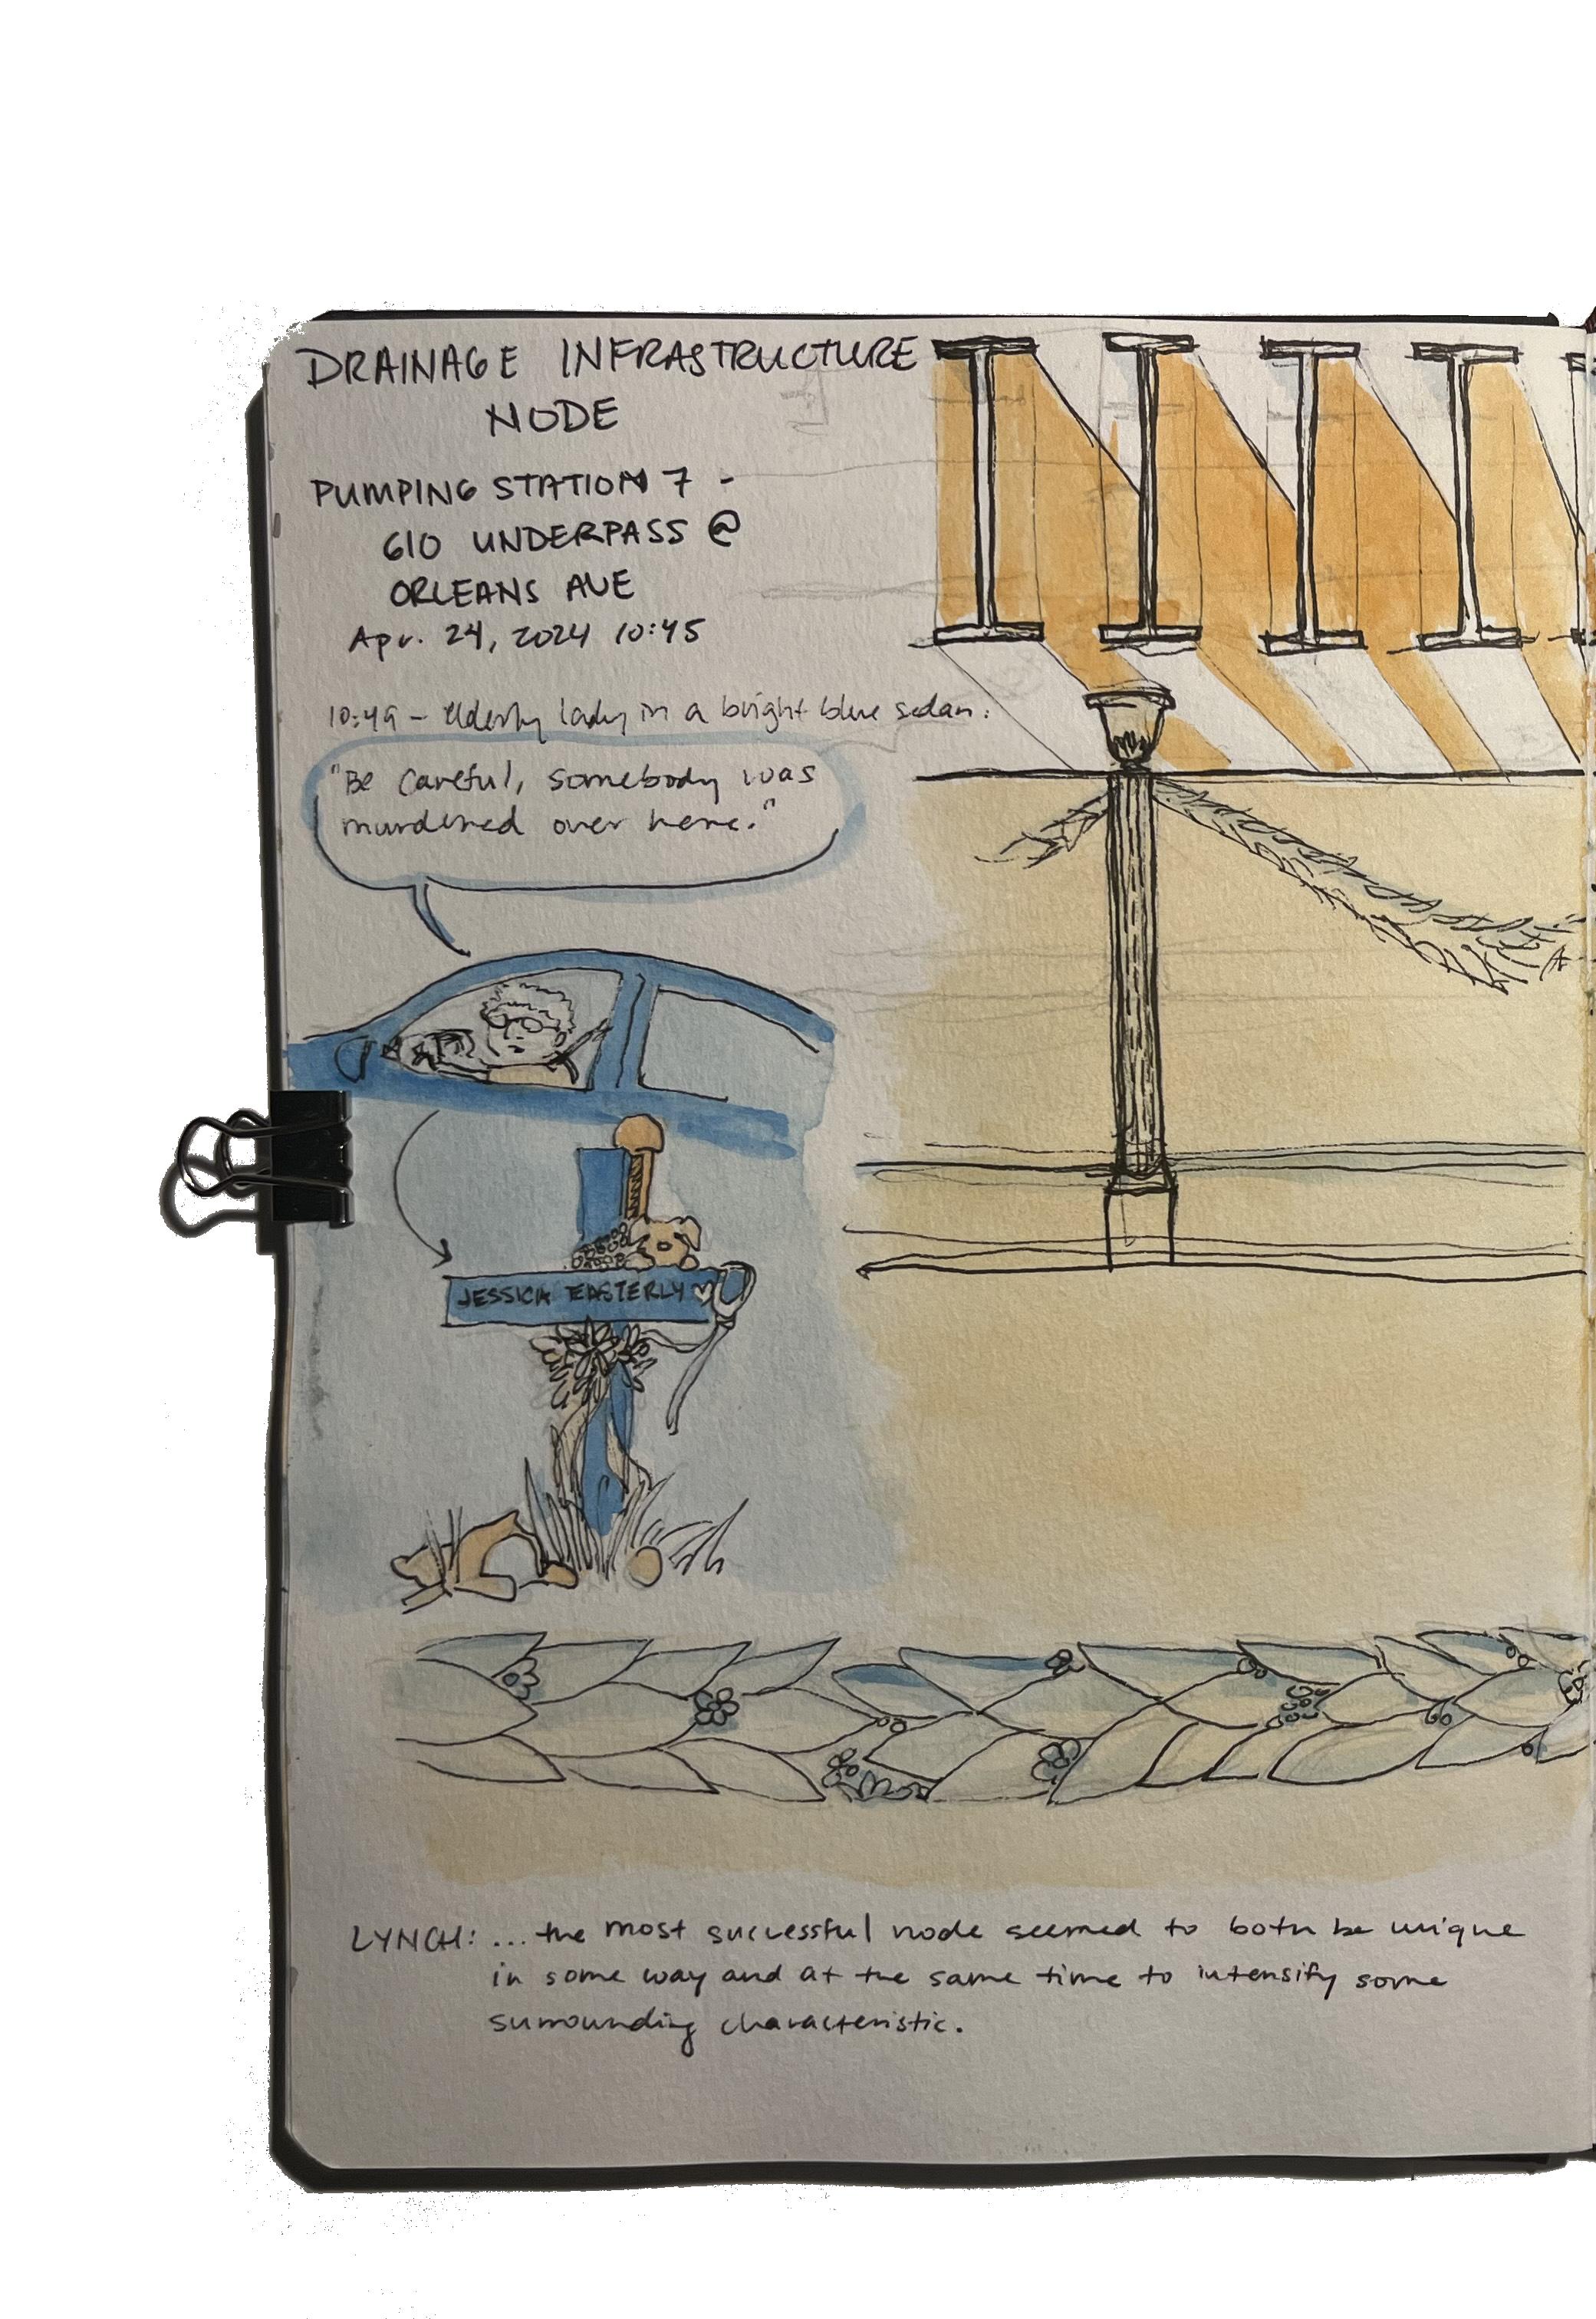 DRAINAGE INFRASTRUCTURE
NODE
PUMPING STATION 7 -
610 UNDERPASS @
ORLEANS AVE
Apr. 24, 2024 10:45
10:49 - Elderly lady in a bright blue sedan:
"Be careful, somebody was
murdered over here."
JESSICA EASTERLY
LYNCH: ... the most successful node seemed to both be unique
in some way and at the same time to intensify some
surrounding characteristic.